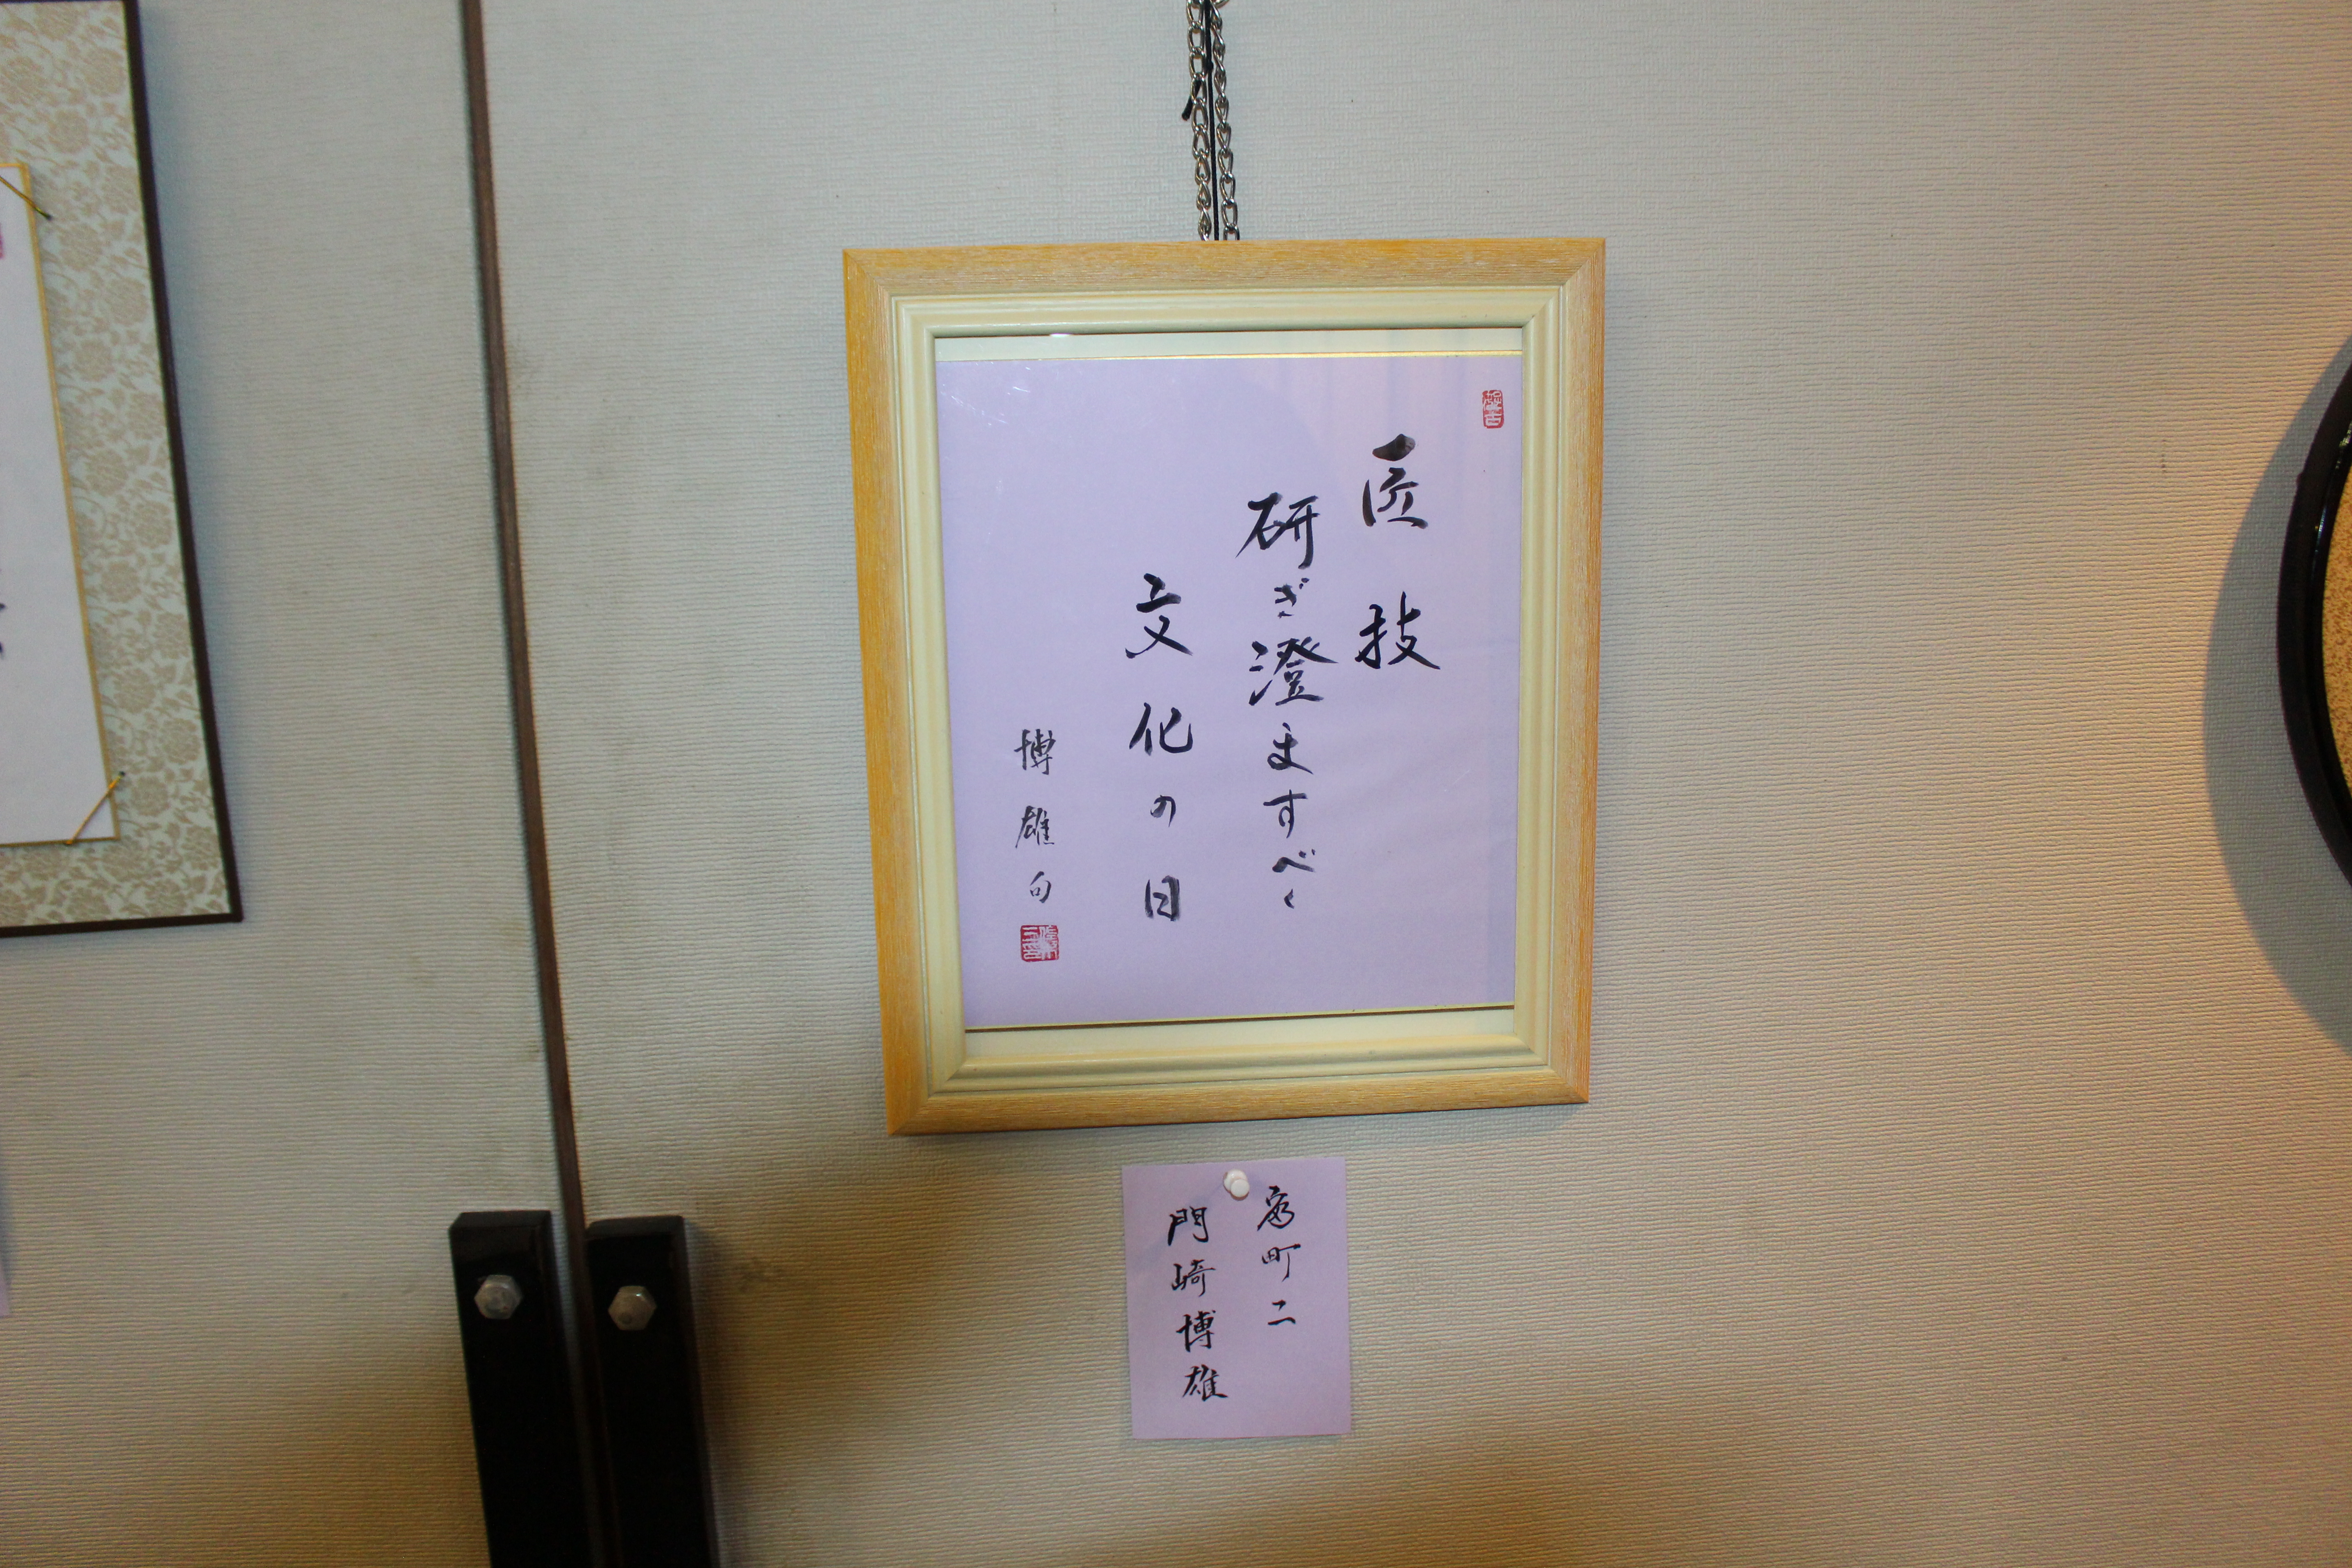 匠技
研ぎ澄ますべく
文化の日
博雄句
町二
門崎博雄